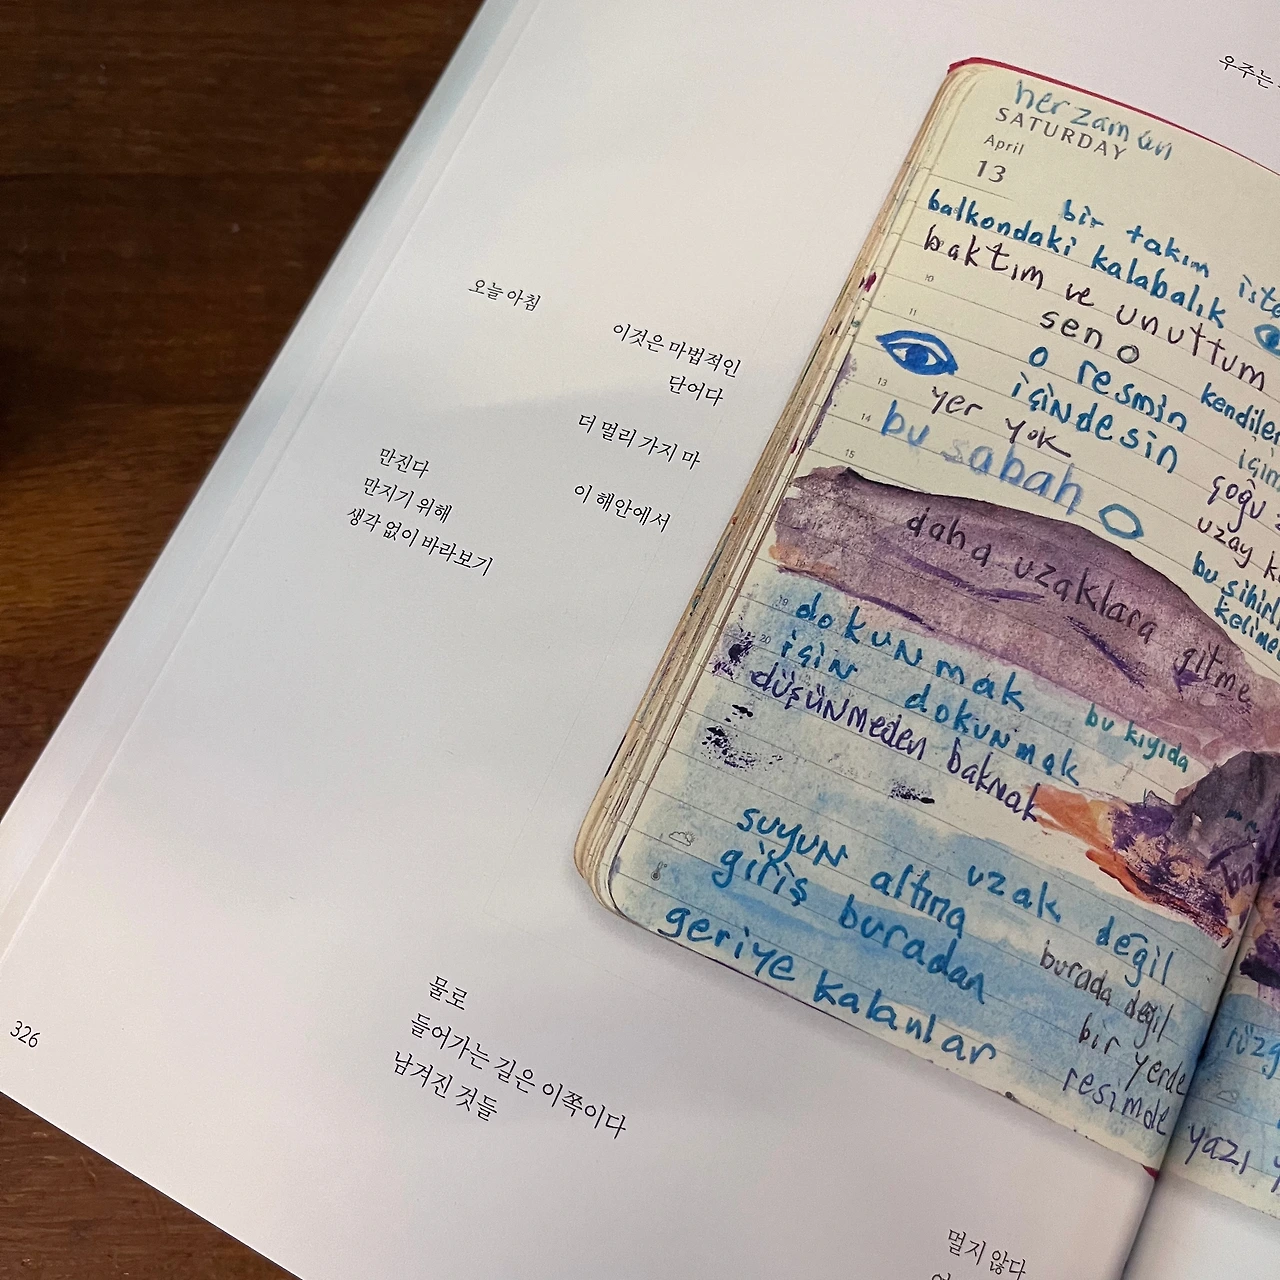 우주는
오늘 아침
이것은 마법적인
단어다
더 멀리 가지 마
만진다
만지기 위해
생각 없이 바라보기
이 해안에서
물로
들어가는 길은 이쪽이다
남겨진 것들
326
멀지 않다
her zaman
SATURDAY
April
13
bir takım
balkondaki kalabalık
baktım ve unuttum
sen o
o resmin
içindesin
kendiler
yer yok
bu sabah
içim
çoğu
uzay
bu sihirli
kelime
daha uzaklara gitme
dokunmak
için dokunmak
bu kıyıda
düşünmeden bakmak
suyun altına
uzak değil
giriş buradan
burada değil
geriye kalanlar
bir yerde
resimde yazı
10
11
13
14
15
19
20